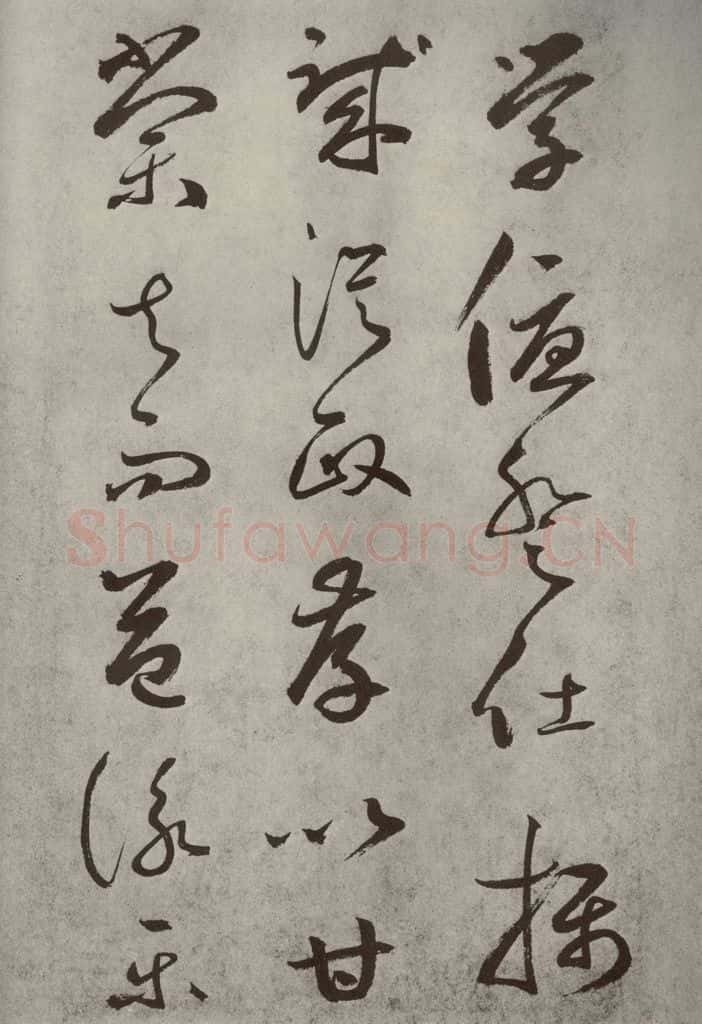 學優登仕攝
職從政存以甘
棠去而益詠樂
Shufawang.CN